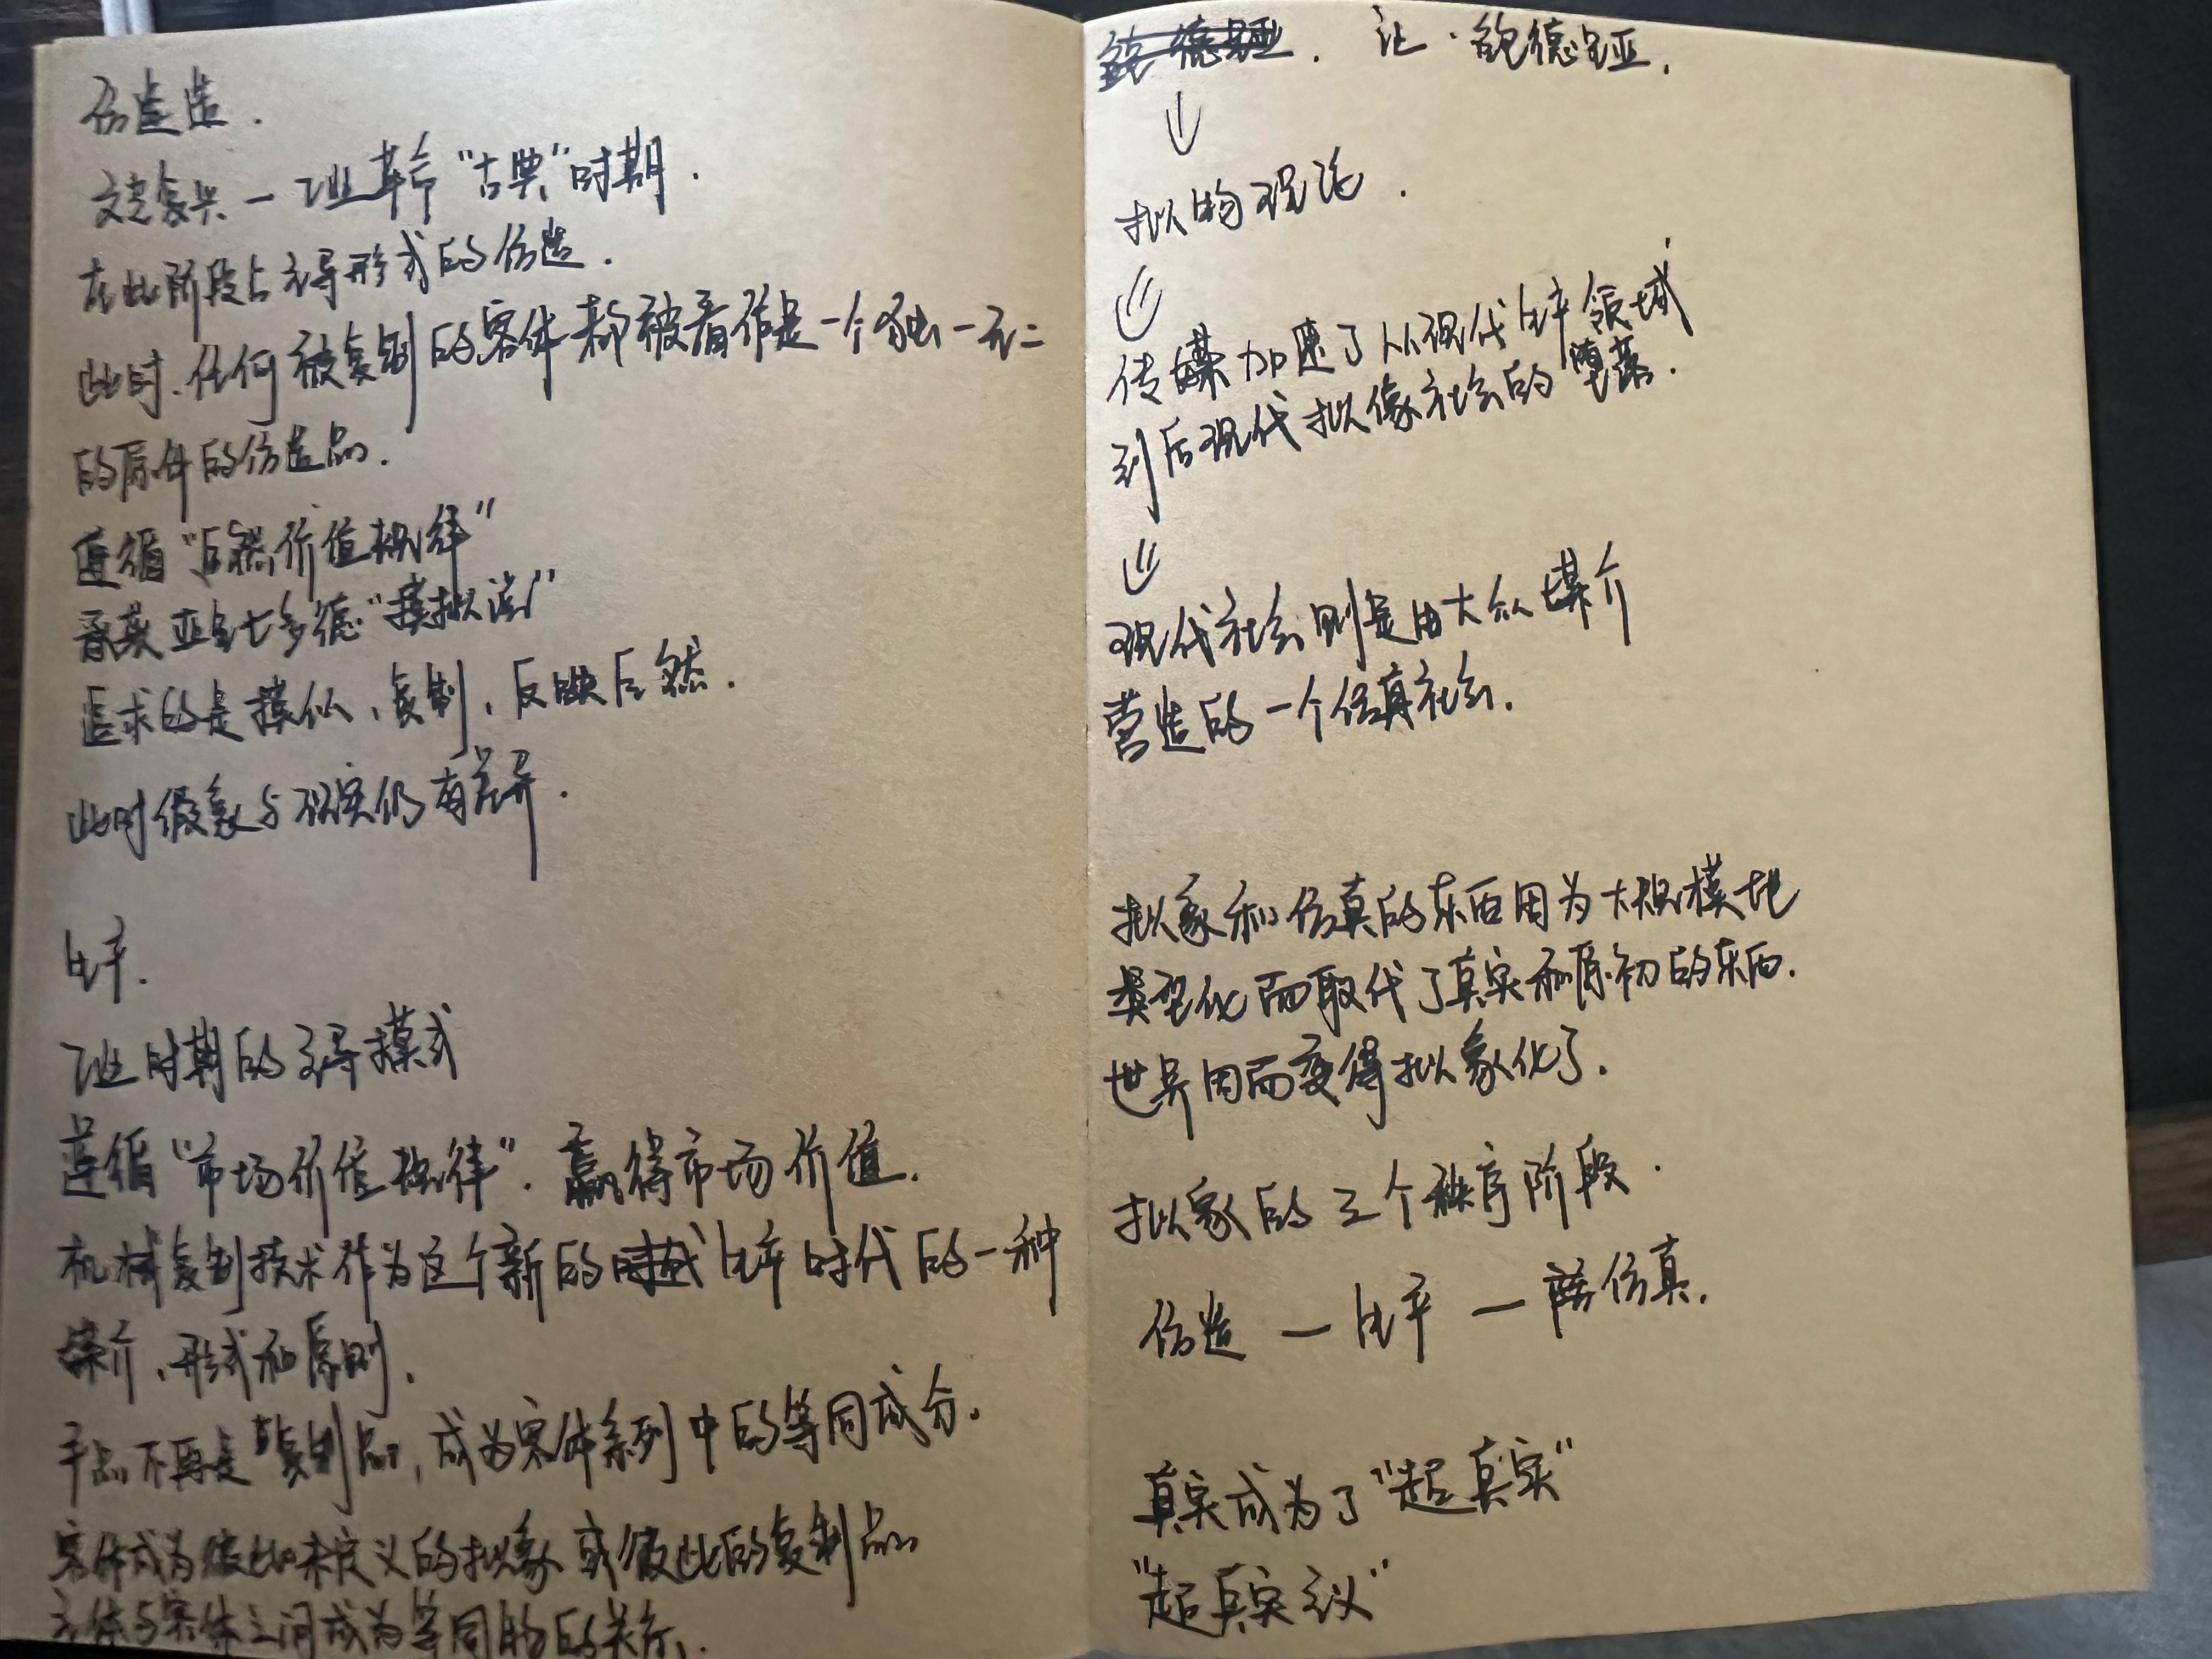 伪造.
文艺复兴一工业革命“古典”时期.
在此阶段占主导形式的伪造.
此时.任何被复制的客体都被看作是一个独一无二
的原件的伪造品.
遵循“自然价值规律”
亚里士多德“模拟说”
追求的是模仿、复制、反映自然.
此时假象与现实仍有差异.
生产.
工业时期的主导模式
遵循“市场价值规律”.赢得市场价值.
机械复制技术作为这个新的生产时代的一种
媒介、形式和原则.
产品不再是复制品,成为客体系列中的等同成分.
客体成为彼此未定义的拟象或彼此的复制品
主体与客体之间成为等同的的关系.
鲍德里亚. 让·鲍德里亚.
拟物理论.
传媒加速了从现代生产领域
到后现代拟像社会的堕落.
现代社会则是由大众媒介
营造的一个仿真社会.
拟象和仿真的东西因为大规模地
类型化而取代了真实和原初的东西.
世界因而变得拟象化了.
拟象的三个秩序阶段.
伪造 — 生产 — 仿真.
真实成为了“超真实”
“超真实主义”